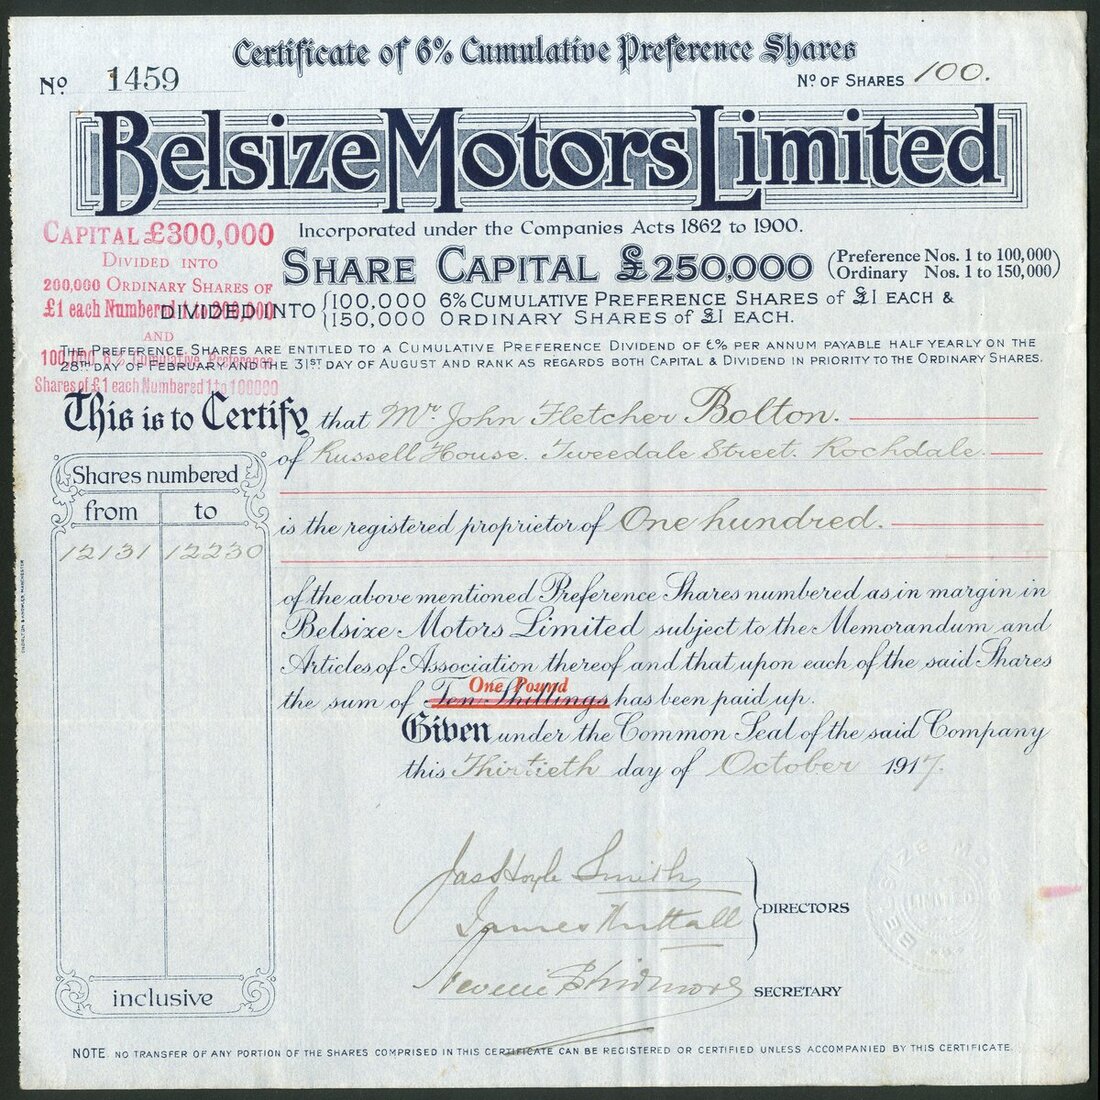 Certificate of 6% Cumulative Preference Shares
No. 1459
No. OF SHARES 100.
Belsize Motors Limited
CAPITAL £300,000
DIVIDED INTO
200,000 ORDINARY SHARES OF
£1 each Numbered 1 to 200,000
AND
100,000 6% Cumulative Preference
Shares of £1 each Numbered 1 to 100000
Incorporated under the Companies Acts 1862 to 1900.
SHARE CAPITAL £250,000 (Preference Nos. 1 to 100,000)
(Ordinary Nos. 1 to 150,000)
DIVIDED INTO {100,000 6% CUMULATIVE PREFERENCE SHARES of £1 EACH &
{150,000 ORDINARY SHARES of £1 EACH.
THE PREFERENCE SHARES ARE ENTITLED TO A CUMULATIVE PREFERENCE DIVIDEND OF 6% PER ANNUM PAYABLE HALF YEARLY ON THE
28TH DAY OF FEBRUARY AND THE 31ST DAY OF AUGUST AND RANK AS REGARDS BOTH CAPITAL & DIVIDEND IN PRIORITY TO THE ORDINARY SHARES.
This is to Certify that Mr. John Fletcher Bolton.
of Russell House. Tweedale Street. Rochdale.
is the registered proprietor of One hundred.
Shares numbered
from to
12131 12230
inclusive
of the above mentioned Preference Shares numbered as in margin in
Belsize Motors Limited subject to the Memorandum and
Articles of Association thereof and that upon each of the said Shares
One Pound
the sum of Ten Shillings has been paid up.
Given under the Common Seal of the said Company
this Thirtieth day of October 1917.
Jas Hoyle Smith
James Nuttall
DIRECTORS
SECRETARY
BELSIZE MO
LIMITED
NOTE. NO TRANSFER OF ANY PORTION OF THE SHARES COMPRISED IN THIS CERTIFICATE CAN BE REGISTERED OR CERTIFIED UNLESS ACCOMPANIED BY THIS CERTIFICATE.